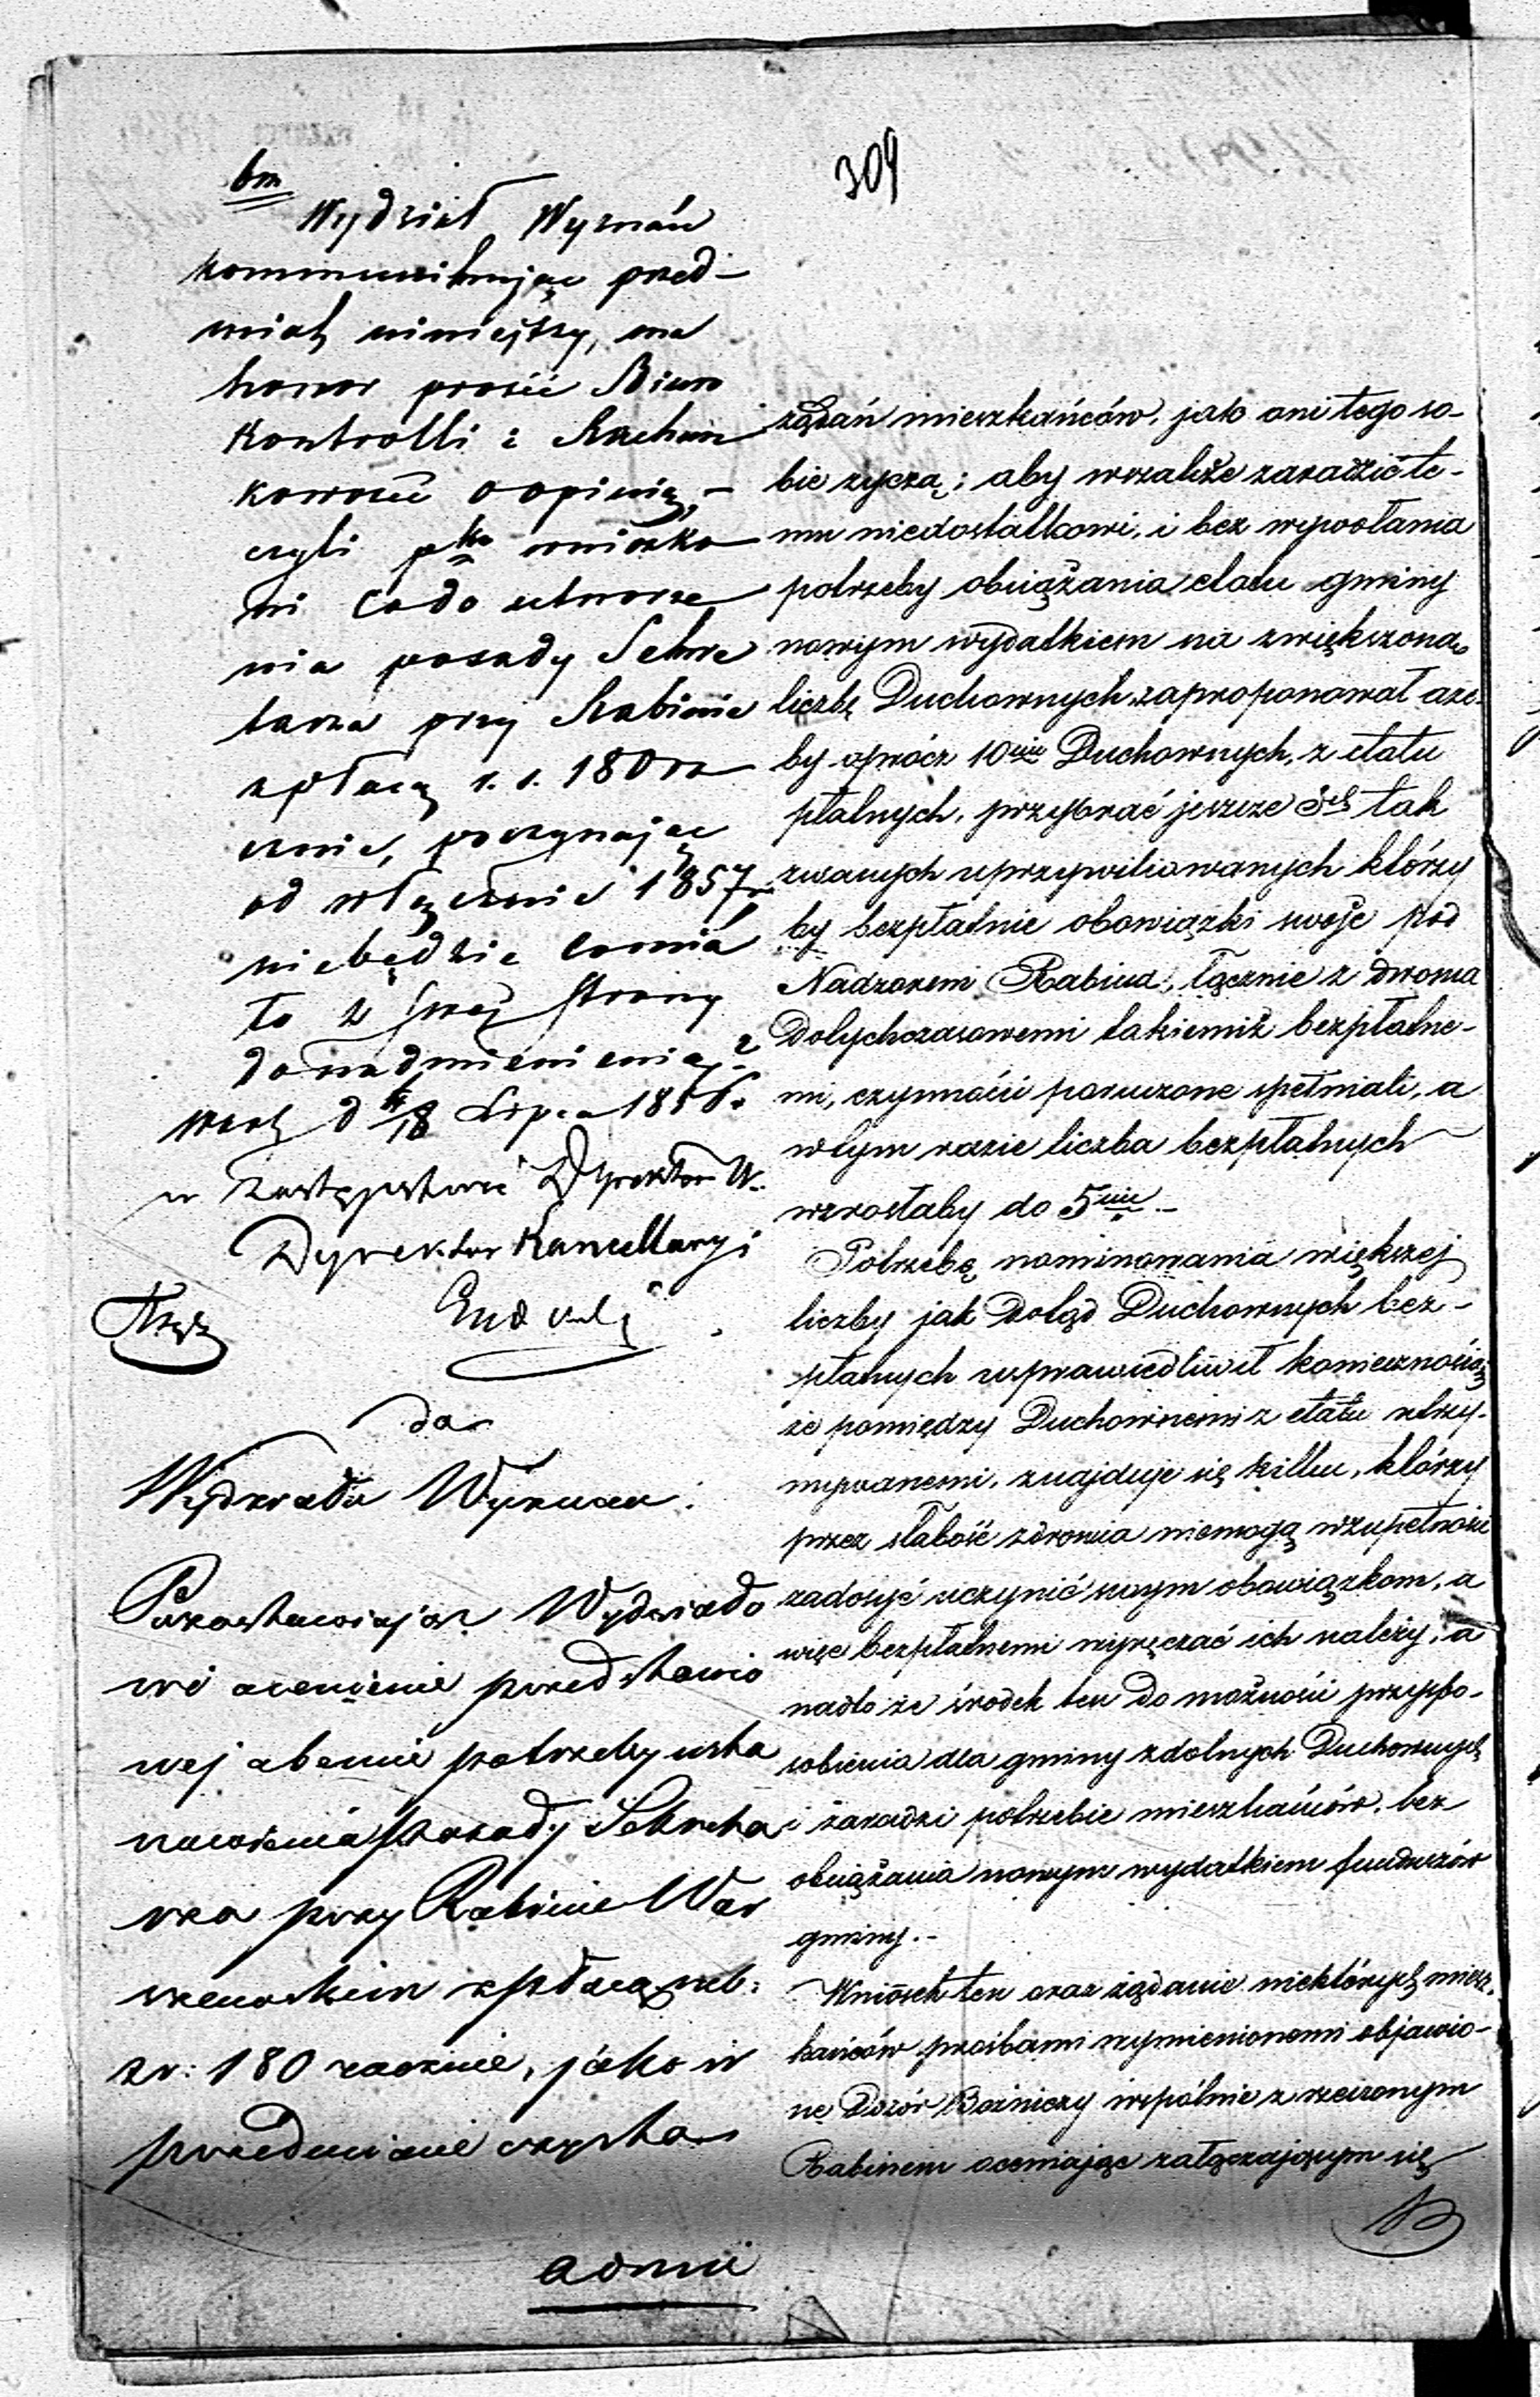 309
bm
Wydział Wyznań
kommunikując przed-
miot niniejszy, ma
honor prosić Biuro
Kontrolli i Rachun
kowości o opinią, -
czyli pko wniosko
wi co do utworze
nia posady Sekre
tarza przy Rabinie
z płacą r. s. 180 ro
cznie, poczynając
od włącznie 1857 r.
niebędzie miał
to z swej strony
do nadmienienia?
Warsz d 6/18 Lipca 1856.
w Zastępstwie Dyrektora W.
Dyrektor Kancellaryi
do
Wydziału Wyznań:
Pozostawiając Wydziało
wi ocenienie przedstawio
nej obecnie potrzeby usta
nowienia posady Sekreta
rza przy Rabinie War
szawskim z płacą rub:
sr: 180 rocznie, jako w
przedmiocie czysto
admi
żądań mieszkańców, jak oni tego so-
bie życzą; aby wszakże zaradzić te-
mu niedostatkowi, i bez wywołania
potrzeby obciążania etatu gminy
nowym wydatkiem na zwiększoną
liczbę Duchownych, zaproponował aże-
by oprócz 10ciu Duchownych, z etatu
płatnych, przybrać jeszcze 3ch tak
zwanych uprzywiliowanych którzy
by bezpłatnie obowiązki swoje pod
Nadzorem Rabina, łącznie z dwoma
Dotychczasowemi takiemiż bezpłatne-
mi, czynności poruczone spełniali, a
w tym razie liczba bezpłatnych
wzrostaby do 5ciu -
Potrzebę nominowania większej
liczby jak Dotąd Duchownych bez-
płatnych usprawiedliwił koniecznością
że pomiędzy Duchownemi z etatu utrzy-
mywanemi, znajduje się kilku, którzy
przez słabość zdrowia niemogą w zupełności
zadosyć uczynić swym obowiązkom, a
więc bezpłatnemi wyręczać ich należy, a
nadto że środek ten Do możności przyspo-
sobienia dla gminy zdolnych Duchownych
i zaradzi potrzebie mieszkańców, bez
obciążania nowym wydatkiem funduszów
gminy. -
Wniosek ten oraz żądanie niektórych miesz-
kańców prośbami wymienionemi objawio-
ne Dozór Bożniczy wspólnie z rzeczonym
Rabinem oceniając załączającym się